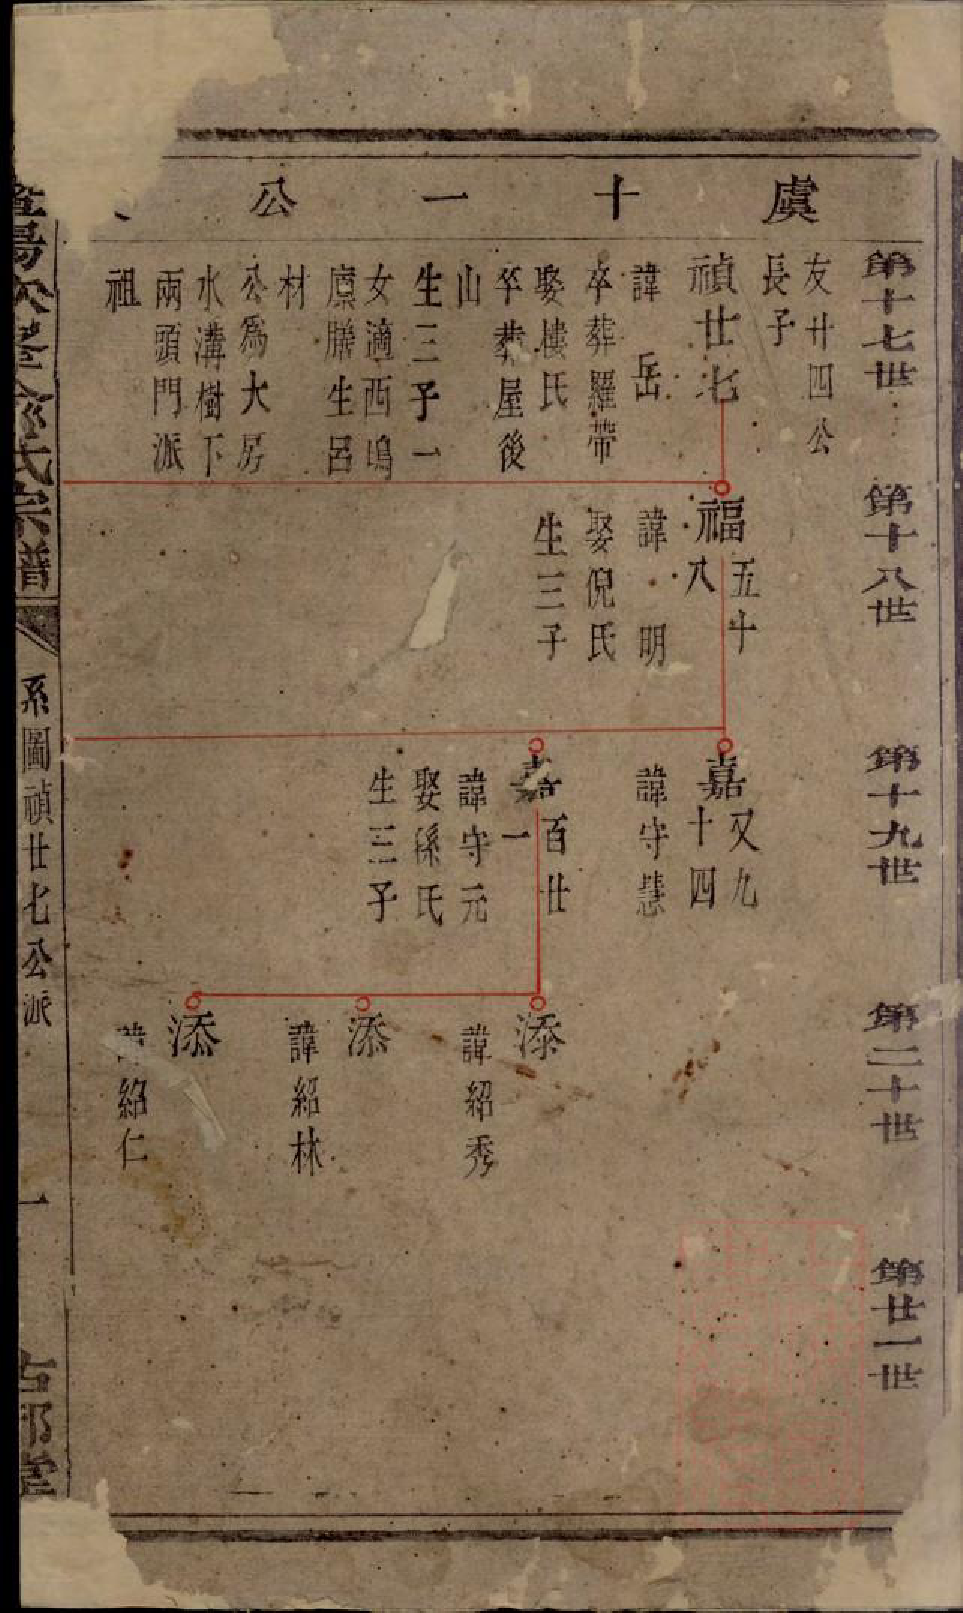 虞十一公
第十七世
友廿四公
長子
禎廿七
諱岳
卒葬羅帶
娶樓氏
卒葬屋後
山
生三子一
女適西塢
廪膳生呂
材
公為大房
水溝樹下
兩頭門派
祖
第十八世
福五十八
諱明
娶倪氏
生三子
第十九世
嘉又九十四
諱守慧
嘉百廿一
諱守元
娶孫氏
生三子
第二十世
添
諱紹秀
添
諱紹林
添
諱紹仁
第廿一世
氏宗譜
系圖禎廿七公派
一